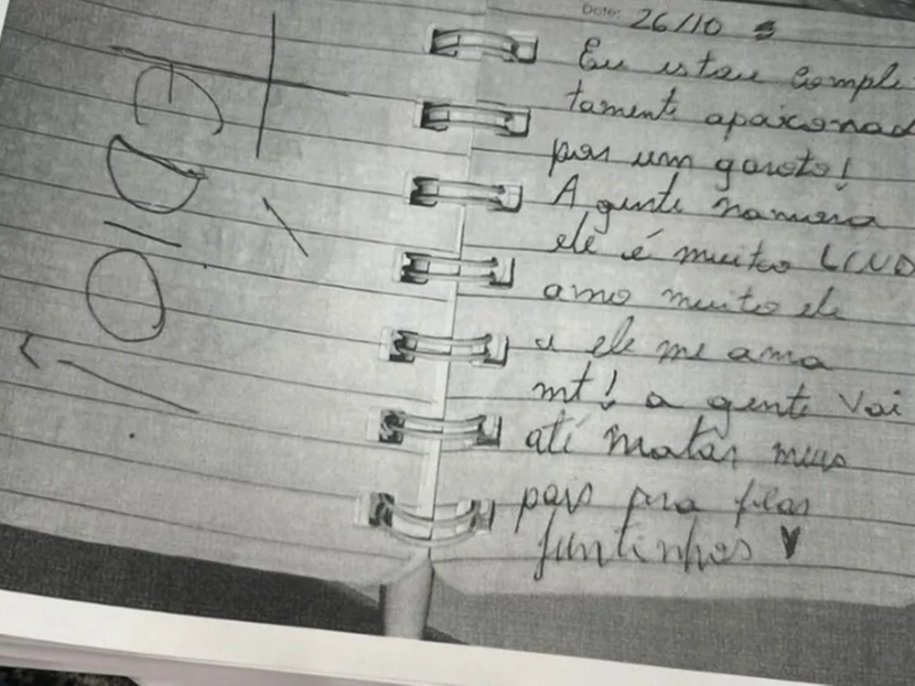 Data: 26/10
Eu estou comple
tamente apaixonad
por um garoto!
A gente namora
ele é muito LIND
amo muito ele
e ele me ama
mt! a gente Vai
até matar meus
pais pra ficar
juntinhos ♥
ODIO